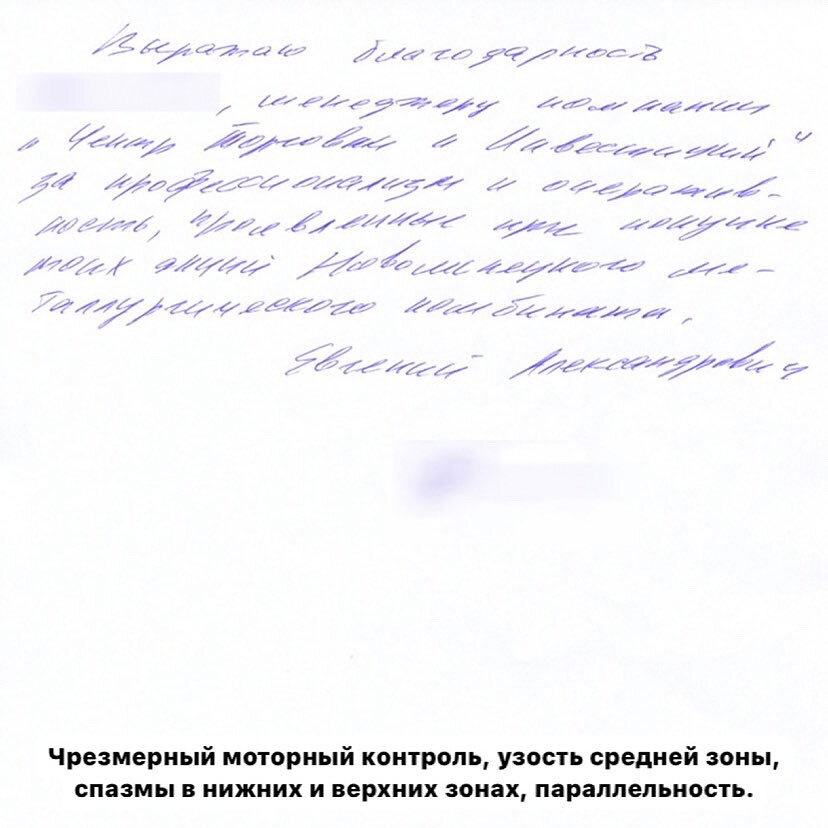 Выражаю благодарность
, менеджеру компании
"Центр Торговли и Инвестиций"
за профессионализм и оператив-
ность, проявленные при покупке
моих акций Новолипецкого ме-
таллургического комбината.
Евгений Александрович
Чрезмерный моторный контроль, узость средней зоны,
спазмы в нижних и верхних зонах, параллельность.